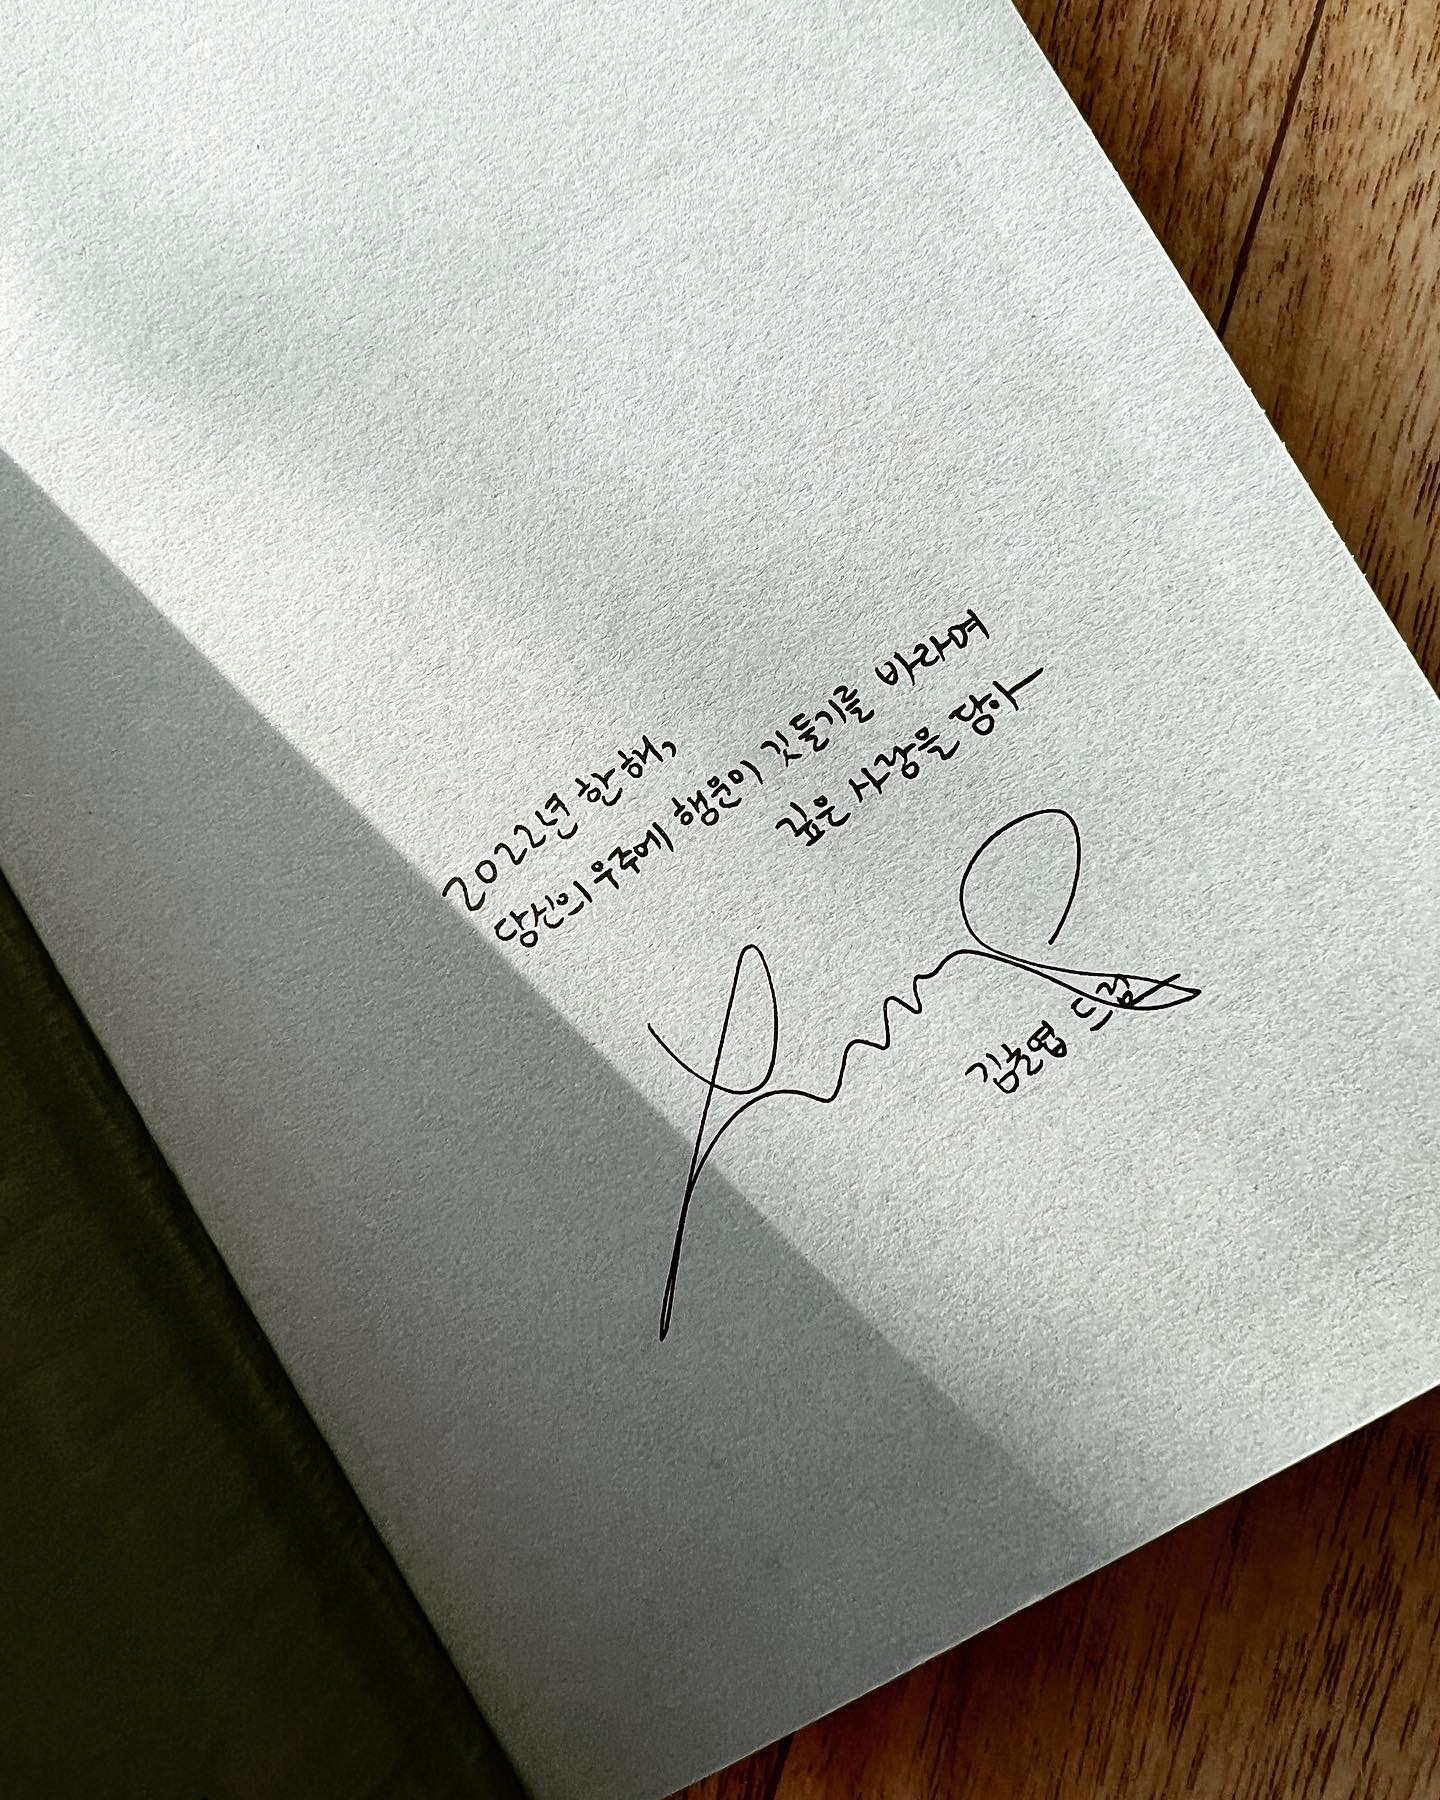 2022년 한 해,
당신의 우주에 행운이 깃들기를 바라며
깊은 사랑을 담아
김은엽 드림